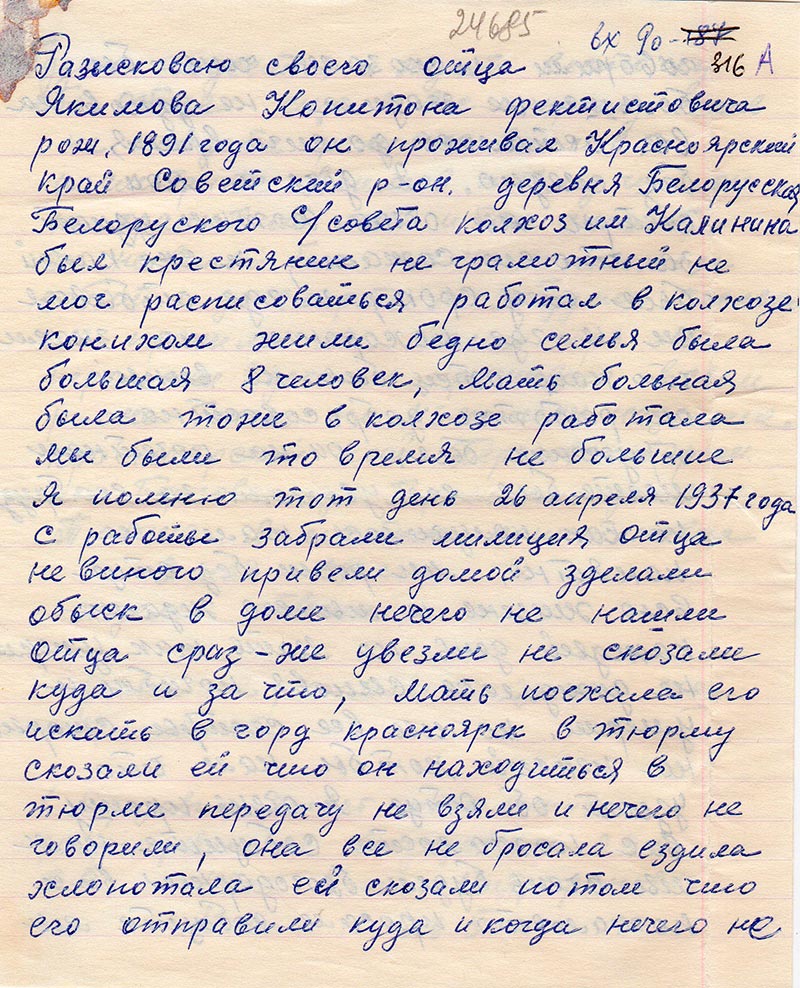 24685
вх 90-187
316 А
Разысковаю своего отца
Якимова Копитона фектистовича
рож. 1891 года он проживал Красноярский
край Советский р-он. деревня Белорусская
Белоруского С/совета колхоз им Калинина
был крестянин не грамотный не
мог расписоваться работал в колхозе
конихом жили бедно семья была
большая 8 человек, Мать больная
была тоже в колхозе работала
мы были то время не большие
Я помню тот день 26 апреля 1937 года
с работы забрали милиция отца
не виного привели домой зделали
обыск в доме нечего не нашли
отца сраз-же увезли не скозали
куда и за что, Мать поехала его
искать в горд красноярск в тюрму
скозали ей что он находиться в
тюрме передачу не взяли и нечего не
говорили, она все не бросала ездила
хлопотала ей скозали потом что
его отправили куда и когда нечего не